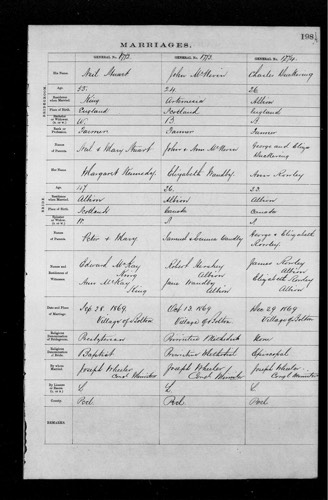 198
MARRIAGES.
GENERAL No. GENERAL No. GENERAL No.
His Name Neil Stuart John McKever Charles
Age 24 26
Residence when Married King Albion
Place of Birth England Scotland England
Bachelor or Widower (B. or W.) W B B
Rank or Profession Farmer Farmer Farmer
Names of Parents Neil & Mary Stuart John & Ann McKever George and Eliza
Her Name Margaret Kennedy Elizabeth Wandby Ann Rowley
Age 26
Residence when Married Albion Albion Albion
Place of Birth Scotland Canada Canada
Spinster or Widow (S. or W.)
Names of Parents Peter & Mary Samuel & Wandby George & Elizabeth
Rowley
Names and Residences of Witnesses Edward McKay Robert Hershey James Rowley
King Albion Albion
Ann McKay Jane Wandby Elizabeth Rowley
King Albion Albion
Date and Place of Marriage Sep 28 1869 Oct 13 1869 Dec 29 1869
Village of Bolton Village of Bolton Village of Bolton
Religious Denomination of Bridegroom Presbyterian Primitive Methodist
Religious Denomination of Bride Baptist Primitive Methodist Episcopal
By whom Married Joseph Wheeler Joseph Wheeler Joseph Wheeler
Congl Minister Congl Minister Congl Minister
By License or Banns (L. or B.) L L L
County Peel Peel Peel
REMARKS